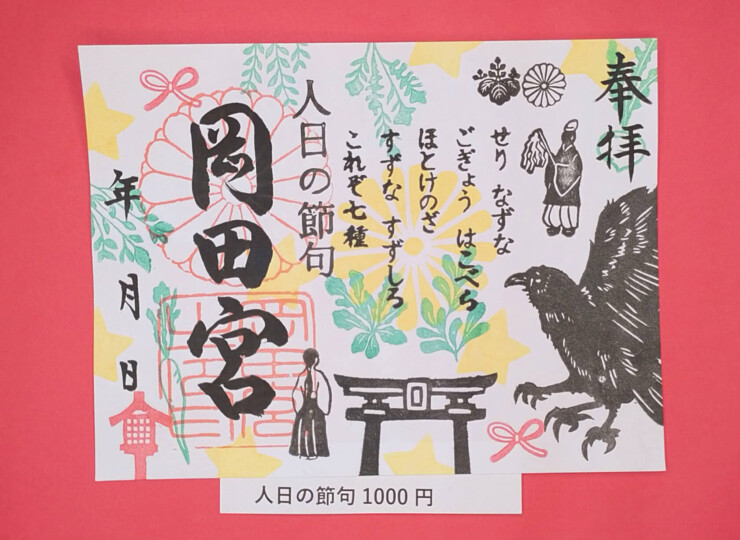 奉拝
せり なずな
ごぎょう はこべら
ほとけのざ
すずな すずしろ
これぞ七種
人日の節句
岡田宮
年 月 日
人日の節句 1000 円